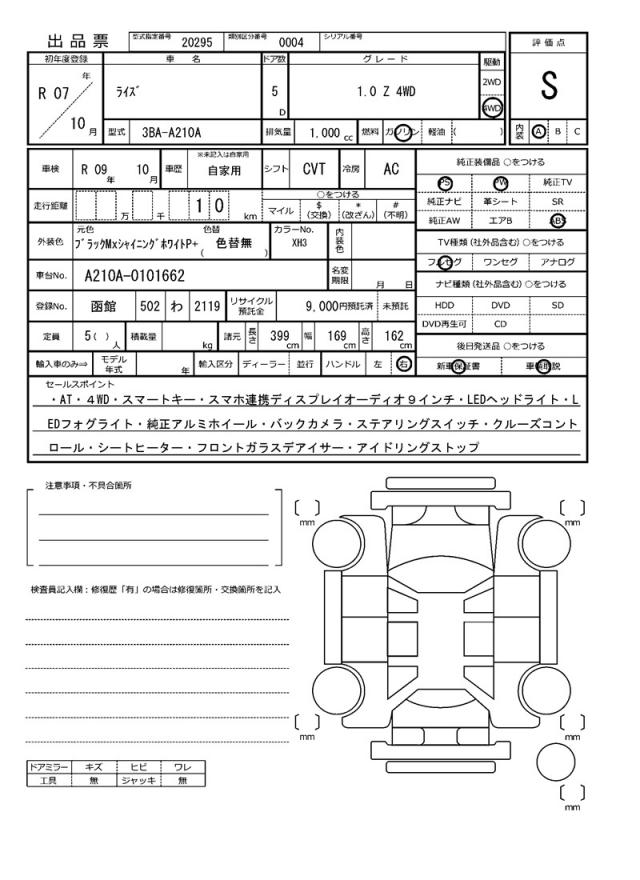 出品票 型式指定番号 20295 類別区分番号 0004 シリアル番号
評価点
S
初年度登録 車名 ドア数 グレード 駆動
R 07 年 10 月 ﾗｲｽﾞ 5 D 1.0 Z 4WD 2WD 4WD
型式 3BA-A210A 排気量 1.000 cc 燃料 ガソリン 軽油 ( ) 内装 A B C
車検 R 09 年 10 月 車歴 ※未記入は自家用 自家用 シフト CVT 冷房 AC
走行距離 万 千 1 0 km ○をつける
マイル $ (交換) * (改ざん) # (不明)
外装色 元色 色替 カラーNo. 内装色
ﾌﾞﾗｯｸMxｼｬｲﾆﾝｸﾞﾎﾜｲﾄP+ ( 色替無 ) XH3
車台No. A210A-0101662 名変期限 月 日
登録No. 函館 502 わ 2119 リサイクル預託金 9,000円預託済 未預託
定員 5( ) 人 積載量 kg 諸元 長さ 399 cm 幅 169 cm 高さ 162 cm
輸入車のみ⇒ モデル年式 年 輸入区分 ディーラー 並行 ハンドル 左 右
純正装備品 ○をつける
PS PW 純正TV
純正ナビ 革シート SR
純正AW エアB ABS
TV種類 (社外品含む) ○をつける
フルセグ ワンセグ アナログ
ナビ種類 (社外品含む) ○をつける
HDD DVD SD
DVD再生可 CD
後日発送品 ○をつける
新車保証書 車輌取説
セールスポイント
・AT・4WD・スマートキー・スマホ連携ディスプレイオーディオ9インチ・LEDヘッドライト・L
EDフォグライト・純正アルミホイール・バックカメラ・ステアリングスイッチ・クルーズコント
ロール・シートヒーター・フロントガラスデアイサー・アイドリングストップ
注意事項・不具合箇所
mm mm
検査員記入欄：修復歴「有」の場合は修復箇所・交換箇所を記入
mm mm
ドアミラー キズ ヒビ ワレ
工具 無 ジャッキ 無
mm